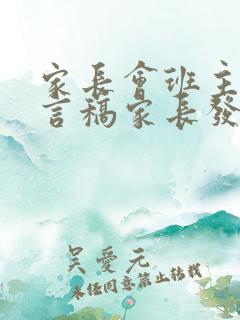 家長會班主
言稿家長發
吳愛元
未经同意禁止转载